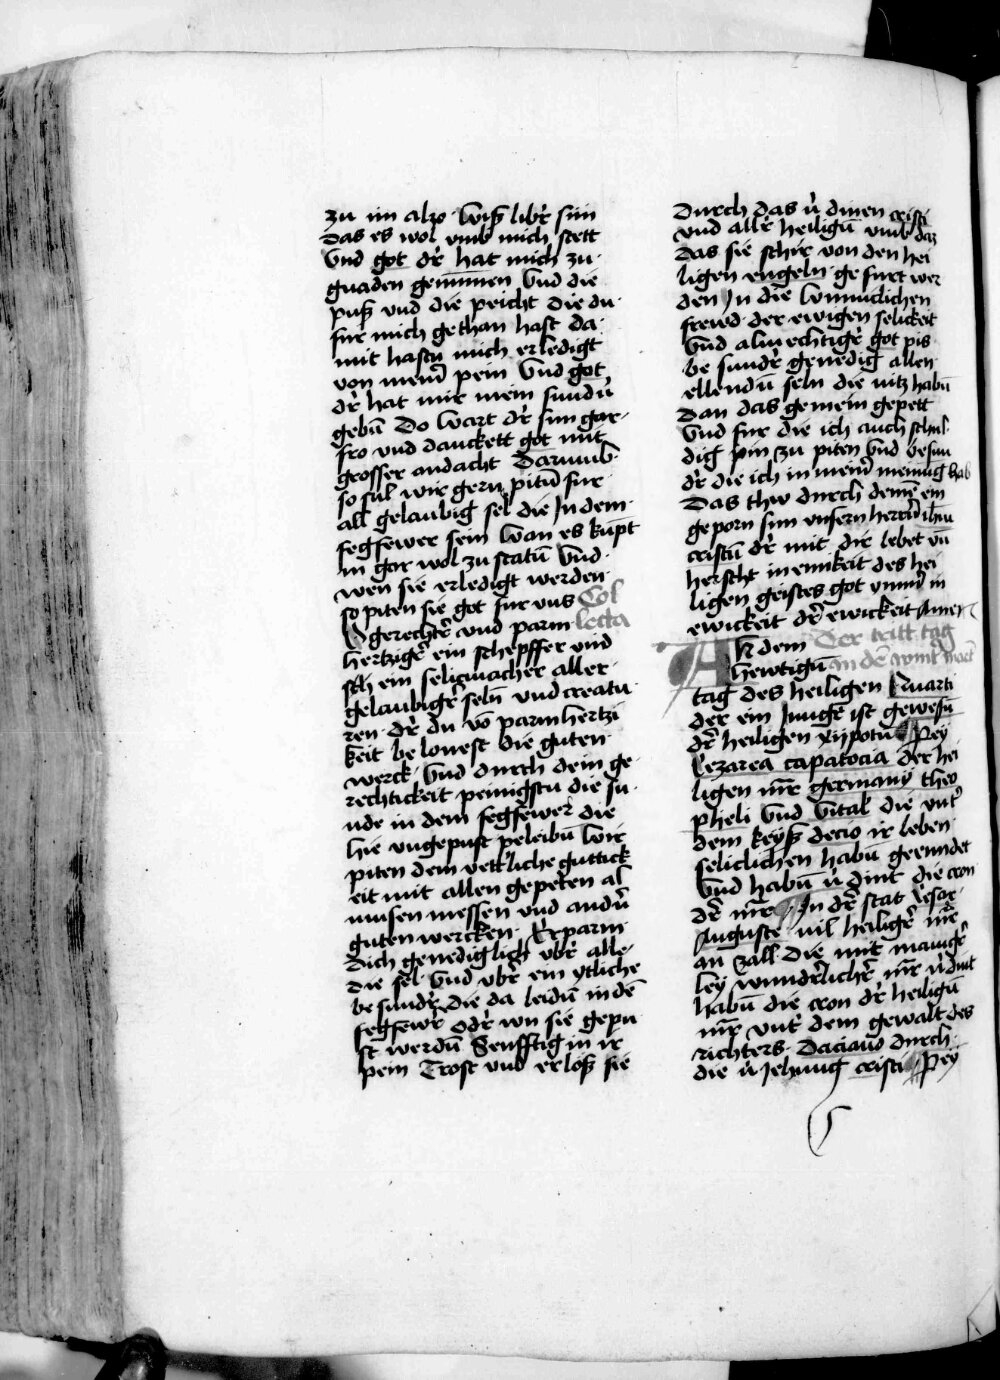 zu im also wiß libr̄ sun
das es wol vmb mich stett
Vnd got dr̄ hat mich zu
gnaden genūmen Vnd die
puß vnd die peicht die du
fur mich gethan hast da
mit hastu mich erledigt
von mein̄ pein Vnd got
dr̄ hat mir mein sundn̄
gebn̄ Do wart dr̄ sun gar
fro vnd danckett got mit
grosser andacht Darumb
so sul wir gern pitn̄ fur
all gelaubig sel die In dem
fegfewer sein wan es kūpt
in gar wol zu statn̄ Vnd
wen sie erledigt werden
so piten sie got fur vns Col
O gerechtr̄ vnd parm lecta
hertzigr̄ ein schepffer vnd
sch ein seligmacher aller
gelaubigr̄ seln̄ vnd creatu
ren dr̄ du vō parmhertzi
keit be lonest die guten
werck Vnd durch dein ge
rechtickeit peinigstu die su
nde in dem fegfewer die
hie vngepust peleibn̄ wir
piten dein vett'liche guttick
eit mit allen gepeten al
musen messen vnd andn̄
guten wercken Er parm
Dich genediglich vbr̄ alle
die sel Vnd vbr̄ ein ytliche
be sundr̄ die da leidn̄ in dē
fegfewr̄ Odr̄ wu sie gepu
st werdn̄ Senfftig in ir
pein Trost vnd erlöß sie
Durch das v̄ dinen cristi
vnd allr̄ heilign̄ vmb daz
das sie schir von den hei
ligen engeln ge furt wer
den In die wunnclichen
frewd der ewigen selickeit
Vnd almechtigr̄ got pis
be sundr̄ genedig allen
ellendn̄ seln die nitz habn̄
dan das gemein gepett
Vnd fur die ich auch schul
dig pin zu piten Vnd besun
dr̄ die ich in mein̄ meinūg hab
Das thw durch deinē ein
geporn sun vnsern herrn̄ ihm̄
cristū dr̄ mit dir lebet vn̄
herscht in einikeit des hei
ligen geistes got ymm̄ in
ewickeit dr̄ ewickeit Amen
An dem Der tritt tag
hewtign̄ an dē wint mact
tag des heiligen Quarti
der ein Iungr̄ ist gewesn̄
dr̄ heiligen xijpotn̄ Pey
Cezarea capatocia der hei
ligen mr̄ germany theo
pheli Vnd Vital die vnt'
dem keyß decio ir leben
seliclichen habn̄ geenndet
Vnd habn̄ v̄ dint die cron
dr̄ mr̄e In dr̄ stat Cesar
Auguste vil heiligr̄ mr̄e
an zall Die mit mangr̄
ley wundr̄lichr̄ mr̄ v̄dint
habn̄ die cron dr̄ heilign̄
mr̄ vnt' dem gewalt des
richters Daciano durch
die v̄ Iehung cristi Pey